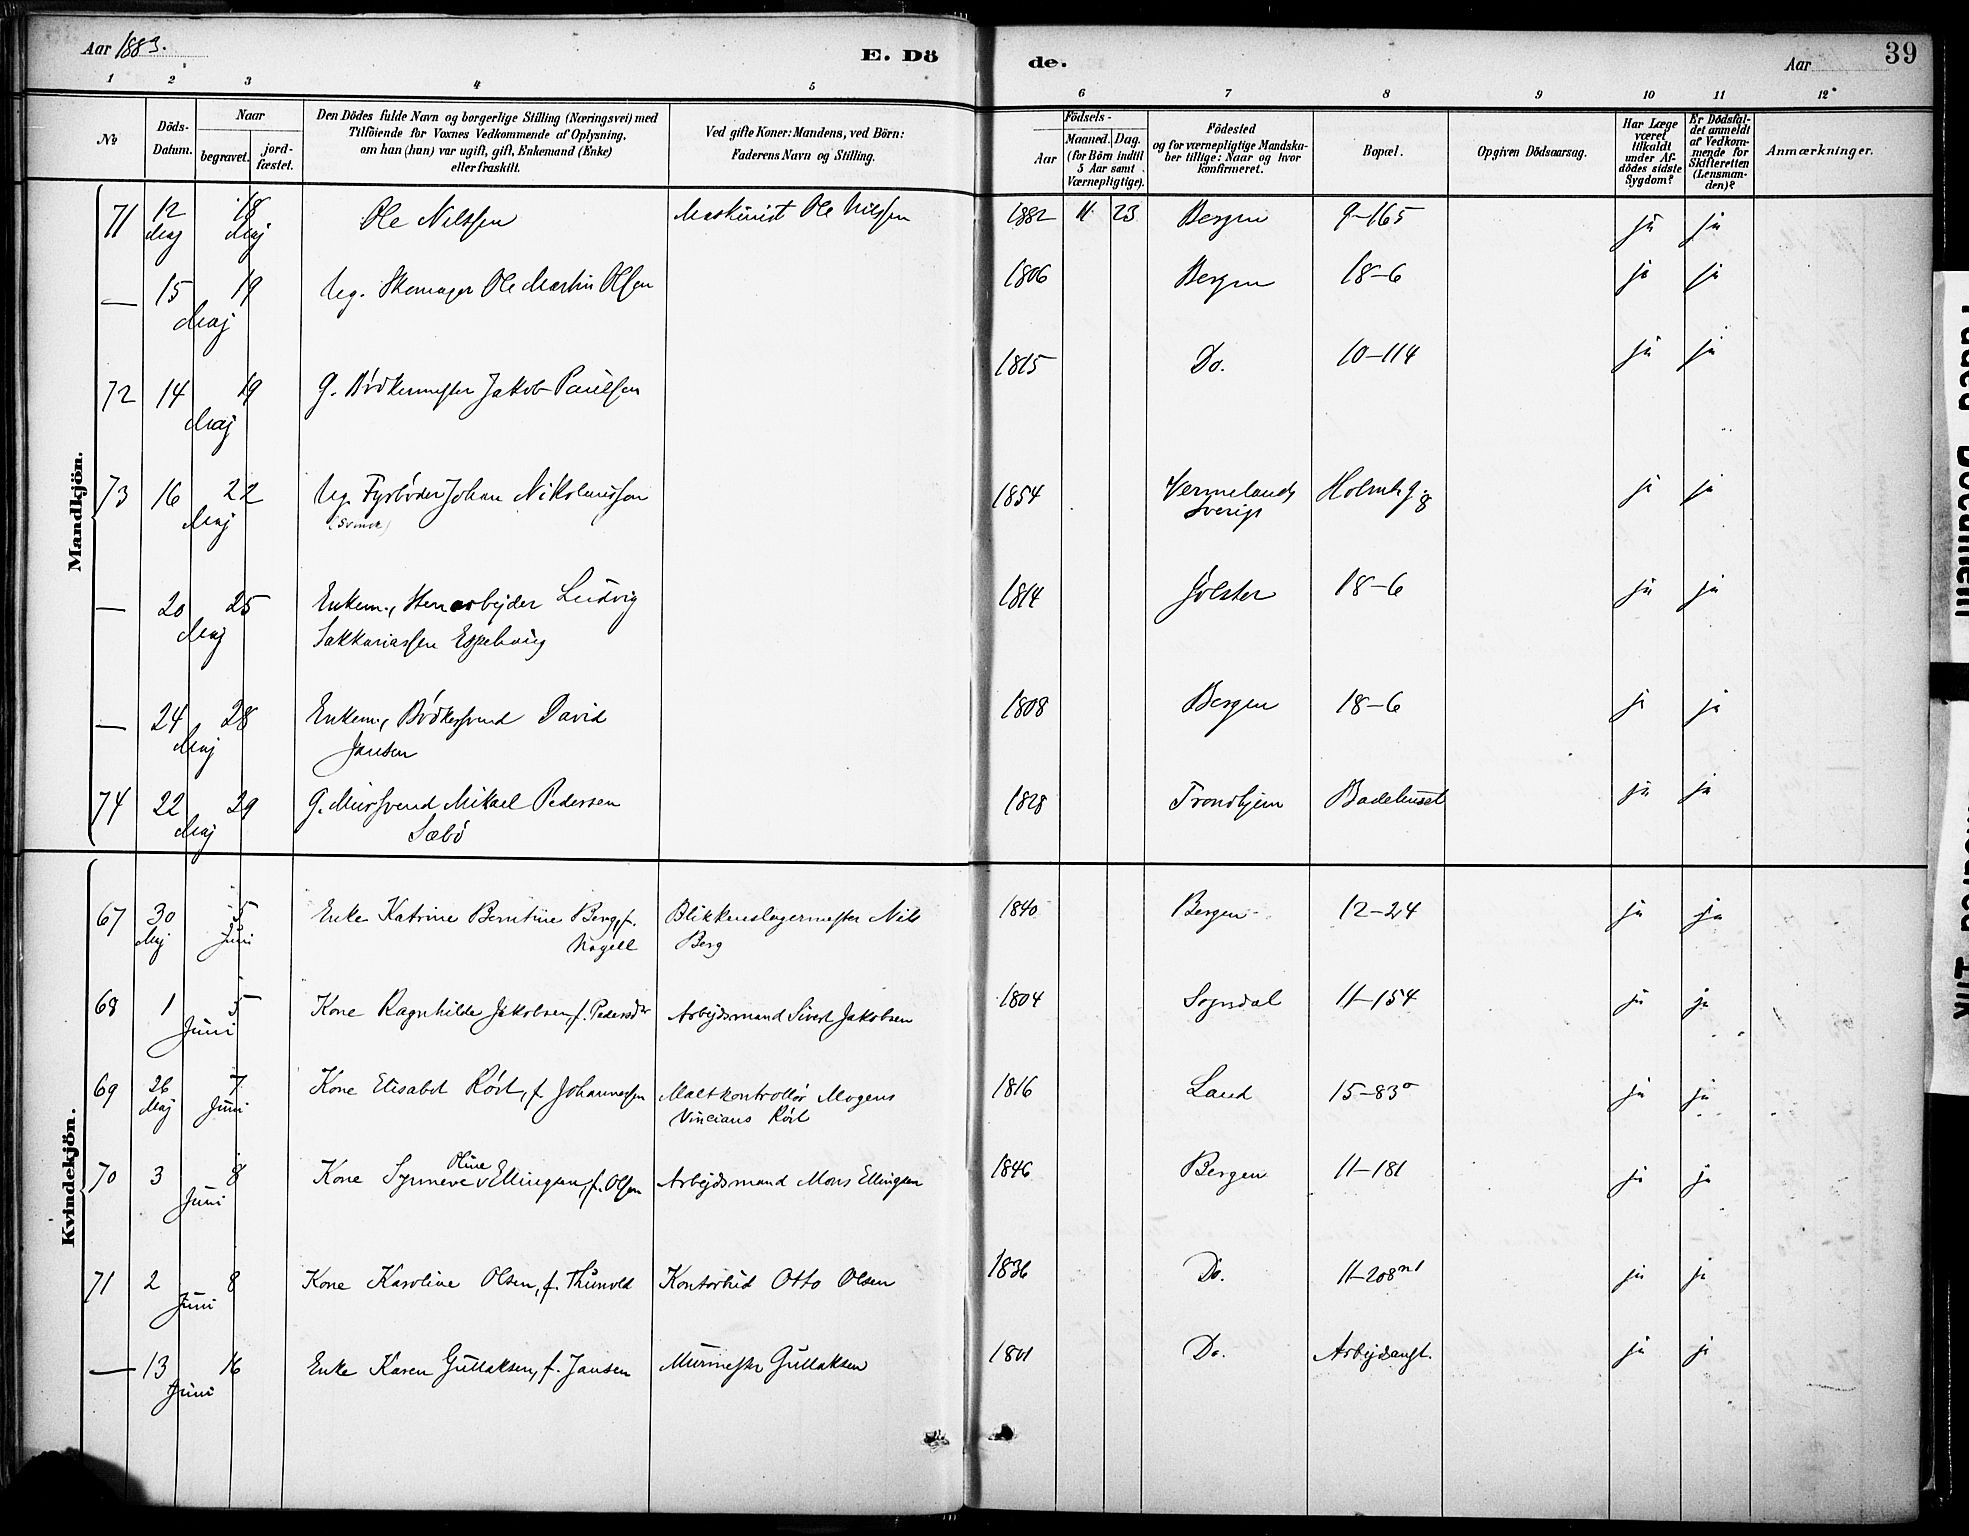 Aar 1883.
E. Dö
de.
Aar
39
1 2 3 4 5 6 7 8 9 10 11 12
No
Döds-
Datum.
Naar
begravet.
jord-
fæstet.
Den Dödes fulde Navn og borgerlige Stilling (Næringsvei) med
Tilföiende for Voxnes Vedkommende af Oplysning,
om han (hun) var ugift, gift, Enkemand (Enke)
eller fraskilt.
Ved gifte Koner: Mandens, ved Börn:
Faderens Navn og Stilling.
Födsels-
Aar
Maaned. Dag.
(for Börn indtil
5 Aar samt
Værnepligtige).
Födested
og for værnepligtige Mandska-
ber tillige: Naar og hvor
konfirmeret.
Bopæl.
Opgiven Dödsaarsag.
Har Læge
været
tilkaldt
under Af-
dödes sidste
Sygdom?
Er Dödsfal-
det anmeldt
af Vedkom-
mende for
Skifteretten
(Lensman-
den)?
Anmærkninger.
Mandkjön.
71 12 Maj 18 Maj Ole Nilssen Maskinist Ole Nilssen 1882 11 23 Bergen 9-165 ja ja
— 15 19 Maj Ug. Skomager Ole Martin Olsen 1806 Bergen 18-6 ja ja
72 14 19 Maj G. Bödkermester Jakob Paulsen 1815 Do. 10-114 ja ja
73 16 22 Maj Ug. Fyrböder Johan Nikolaussen 1854 Vermeland, Holmeg. 8 ja ja
(Svensk) Sverige
— 20 25 Maj Enkem., Stenarbejder Ludvig 1814 Jölster 18-6 ja ja
Sakkariassen Espehaug
— 24 28 Maj Enkem., Bödkersvend David 1808 Bergen 18-6 ja ja
Jansen
74 22 29 Maj G. Mursvend Mikael Pedersen 1828 Trondhjem Badehuset ja ja
Sæbö
Kvindekjön.
67 30 Maj 5 Juni Enke Katrine Berntine Berg, f. Blikkenslagermester Nils 1840 Bergen 12-24 ja ja
Nagell Berg
68 1 5 Juni Kone Ragnhilde Jakobsen, f. Pedersdr Arbejdsmand Sivert Jakobsen 1804 Sogndal 11-154 ja ja
69 26 Maj 7 Juni Kone Elisabet Röst, f. Johannessen Maltkontrollör Mogens 1816 Land 15-83a ja ja
Vincians Röst
70 3 8 Juni Kone Synneve Oline Ellingsen, f. Olsen Arbejdsmand Mons Ellingsen 1846 Bergen 11-181 ja ja
71 2 8 Juni Kone Karoline Olsen, f. Thunold Kontorbud Otto Olsen 1836 Do. 11-208 ja ja
— 13 16 Juni Enke Karen Gullaksen, f. Jansen Murmester Gullaksen 1801 Do. Arbejdsanst. ja ja